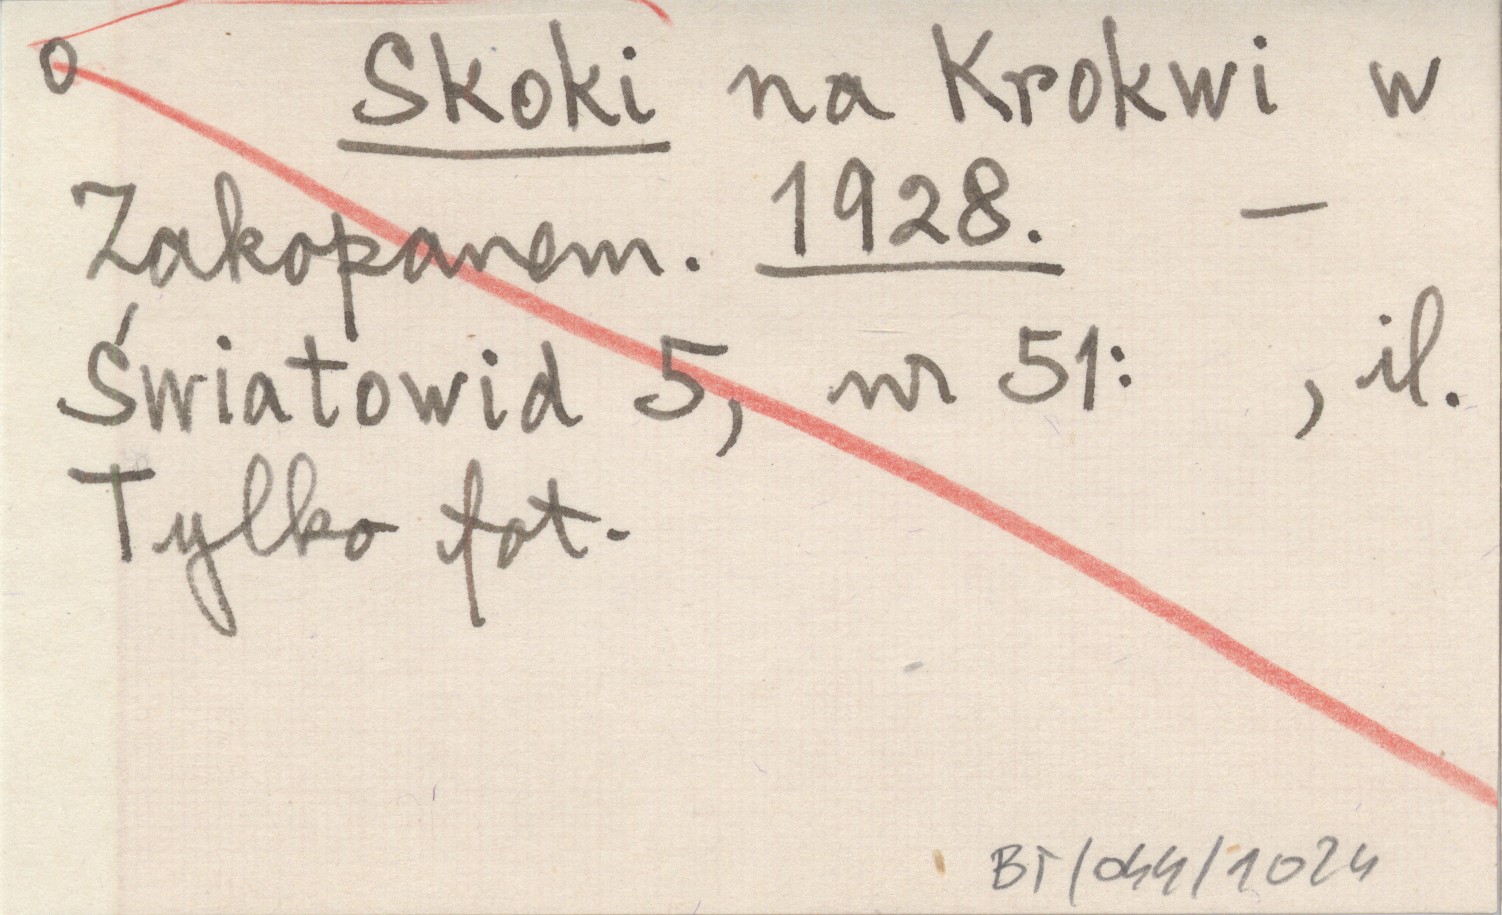 0 Skoki na Krokwi w
Zakopanem. 1928. —
Światowid 5, nr 51: , il.
Tylko fot.
BT/044/1024